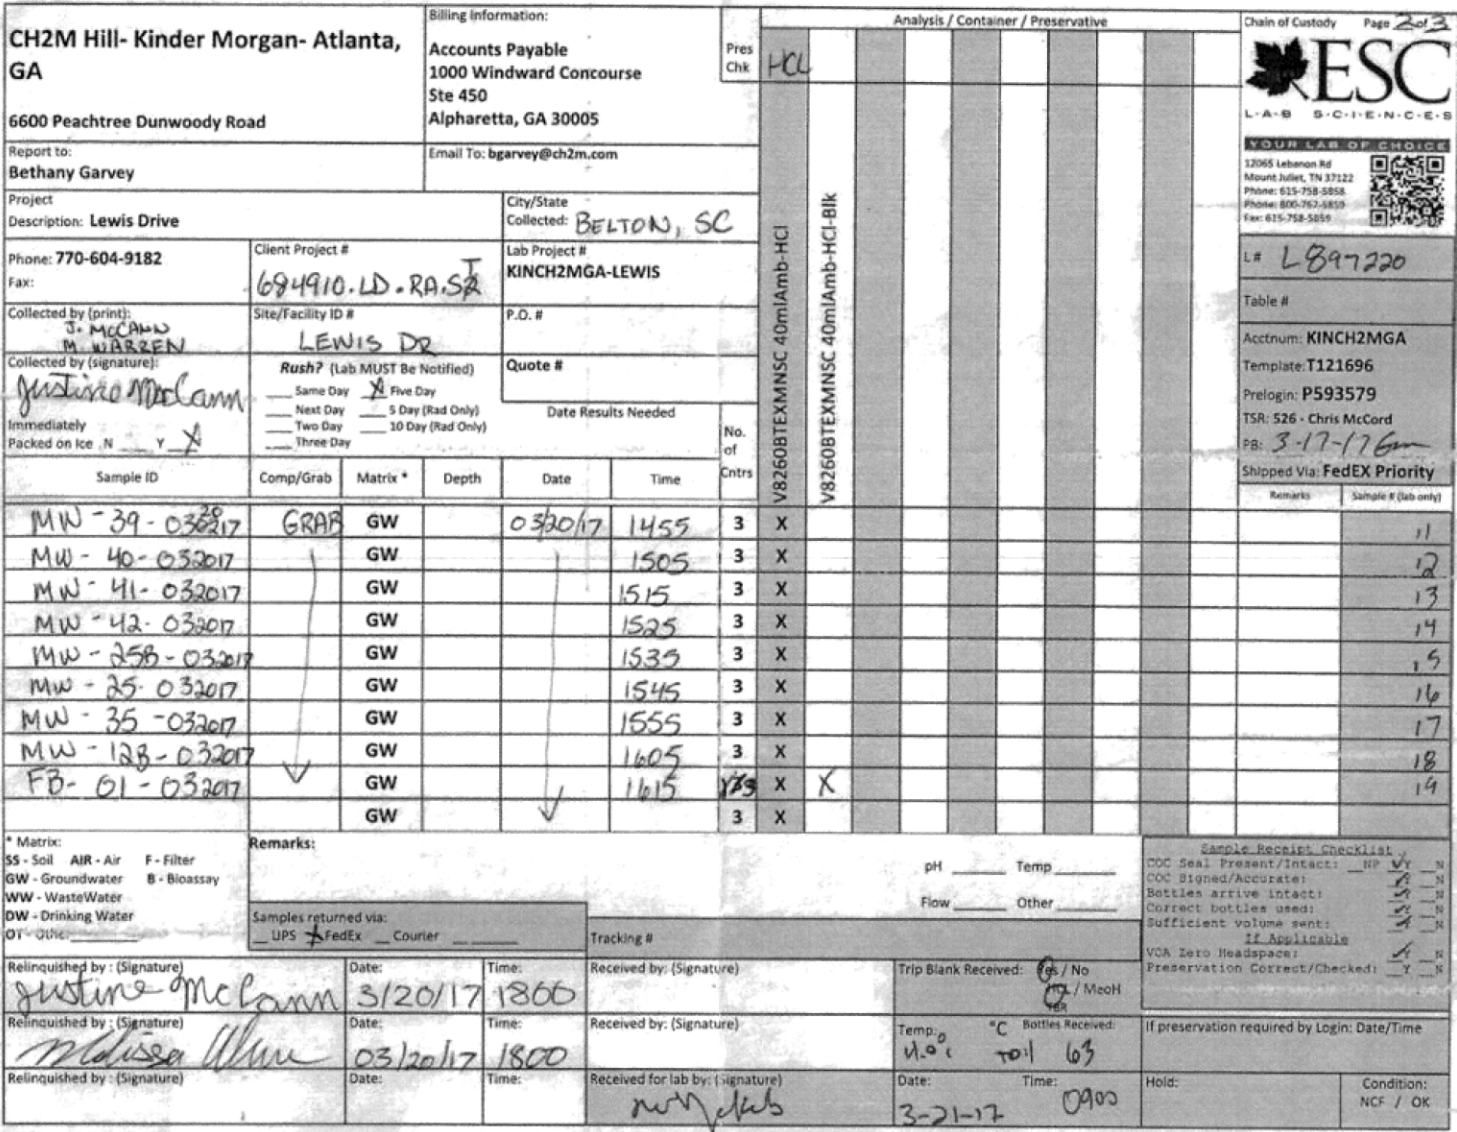 CH2M Hill- Kinder Morgan- Atlanta,
GA
6600 Peachtree Dunwoody Road
Billing Information:
Accounts Payable
1000 Windward Concourse
Ste 450
Alpharetta, GA 30005
Pres
Chk
HCL
Analysis / Container / Preservative
Chain of Custody Page 2 of 3
ESC
L·A·B S·C·I·E·N·C·E·S
YOUR LAB OF CHOICE
12065 Lebanon Rd
Mount Juliet, TN 37122
Phone: 615-758-5858
Phone: 800-767-5859
Fax: 615-758-5859
Report to:
Bethany Garvey
Email To: bgarvey@ch2m.com
Project
Description: Lewis Drive
City/State
Collected: BELTON, SC
Phone: 770-604-9182
Fax:
Client Project #
684910.LD.RA.S
Lab Project #
KINCH2MGA-LEWIS
Collected by (print):
J. MCCANN
M. WARREN
Site/Facility ID #
LEWIS DR
P.O. #
Collected by (signature):
Justine McCann
Rush? (Lab MUST Be Notified)
___ Same Day X Five Day
___ Next Day ___ 5 Day (Rad Only)
___ Two Day ___ 10 Day (Rad Only)
___ Three Day
Quote #
Date Results Needed
Immediately
Packed on Ice N ___ Y X
No.
of
Cntrs
V8260BTEXMNSC 40mlAmb-HCl
V8260BTEXMNSC 40mlAmb-HCl-Blk
L# L897220
Table #
Acctnum: KINCH2MGA
Template: T121696
Prelogin: P593579
TSR: 526 - Chris McCord
PB: 3-17-17
Shipped Via: FedEX Priority
Remarks Sample # (lab only)
Sample ID Comp/Grab Matrix * Depth Date Time
MW - 39 - 032017 GRAB GW 03/20/17 1455 3 X 11
MW - 40 - 032017 GW 1505 3 X 12
MW - 41 - 032017 GW 1515 3 X 13
MW - 42 - 032017 GW 1525 3 X 14
MW - 25B - 032017 GW 1535 3 X 15
MW - 25 - 032017 GW 1545 3 X 16
MW - 35 - 032017 GW 1555 3 X 17
MW - 12B - 032017 GW 1605 3 X 18
FB - 01 - 032017 GW 1615 3 X X 19
GW 3 X
* Matrix:
SS - Soil AIR - Air F - Filter
GW - Groundwater B - Bioassay
WW - WasteWater
DW - Drinking Water
OT - Other
Remarks:
pH ___ Temp ___
Flow ___ Other ___
Samples returned via:
___ UPS X FedEx ___ Courier ___
Tracking #
Sample Receipt Checklist
COC Seal Present/Intact: _NP Y _N
COC Signed/Accurate: Y _N
Bottles arrive intact: Y _N
Correct bottles used: Y _N
Sufficient volume sent: Y _N
If Applicable
VOA Zero Headspace: Y _N
Preservation Correct/Checked: _Y _N
Relinquished by : (Signature)
Justine McCann
Date: 3/20/17
Time: 1800
Received by: (Signature)
Trip Blank Received: Yes / No
HCL / MeoH
TBR
Relinquished by : (Signature)
Date: 03/20/17
Time: 1800
Received by: (Signature)
Temp: °C Bottles Received:
4.0 63
If preservation required by Login: Date/Time
Relinquished by : (Signature)
Date:
Time:
Received for lab by: (Signature)
Date: 3-21-17
Time: 0900
Hold:
Condition:
NCF / OK